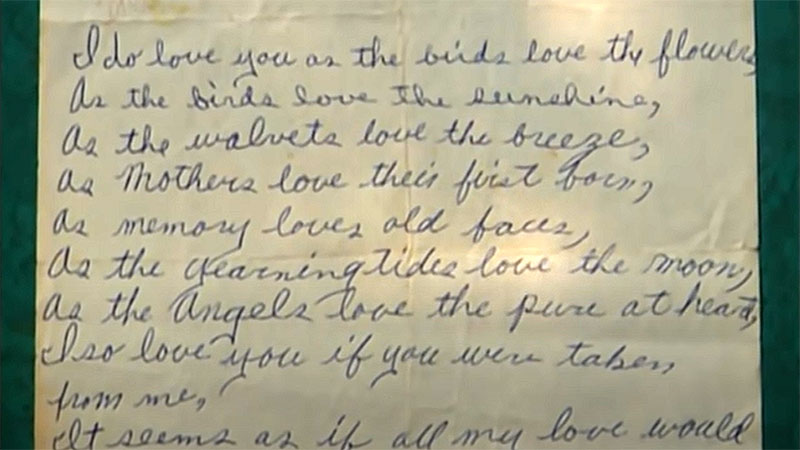 I do love you as the birds love the flowers
As the birds love the sunshine,
As the walvets love the breeze,
As Mothers love their first born,
As memory loves old faces,
As the yearning tides love the moon,
As the Angels love the pure at heart,
I so love you if you were taken
from me,
It seems as if all my love would